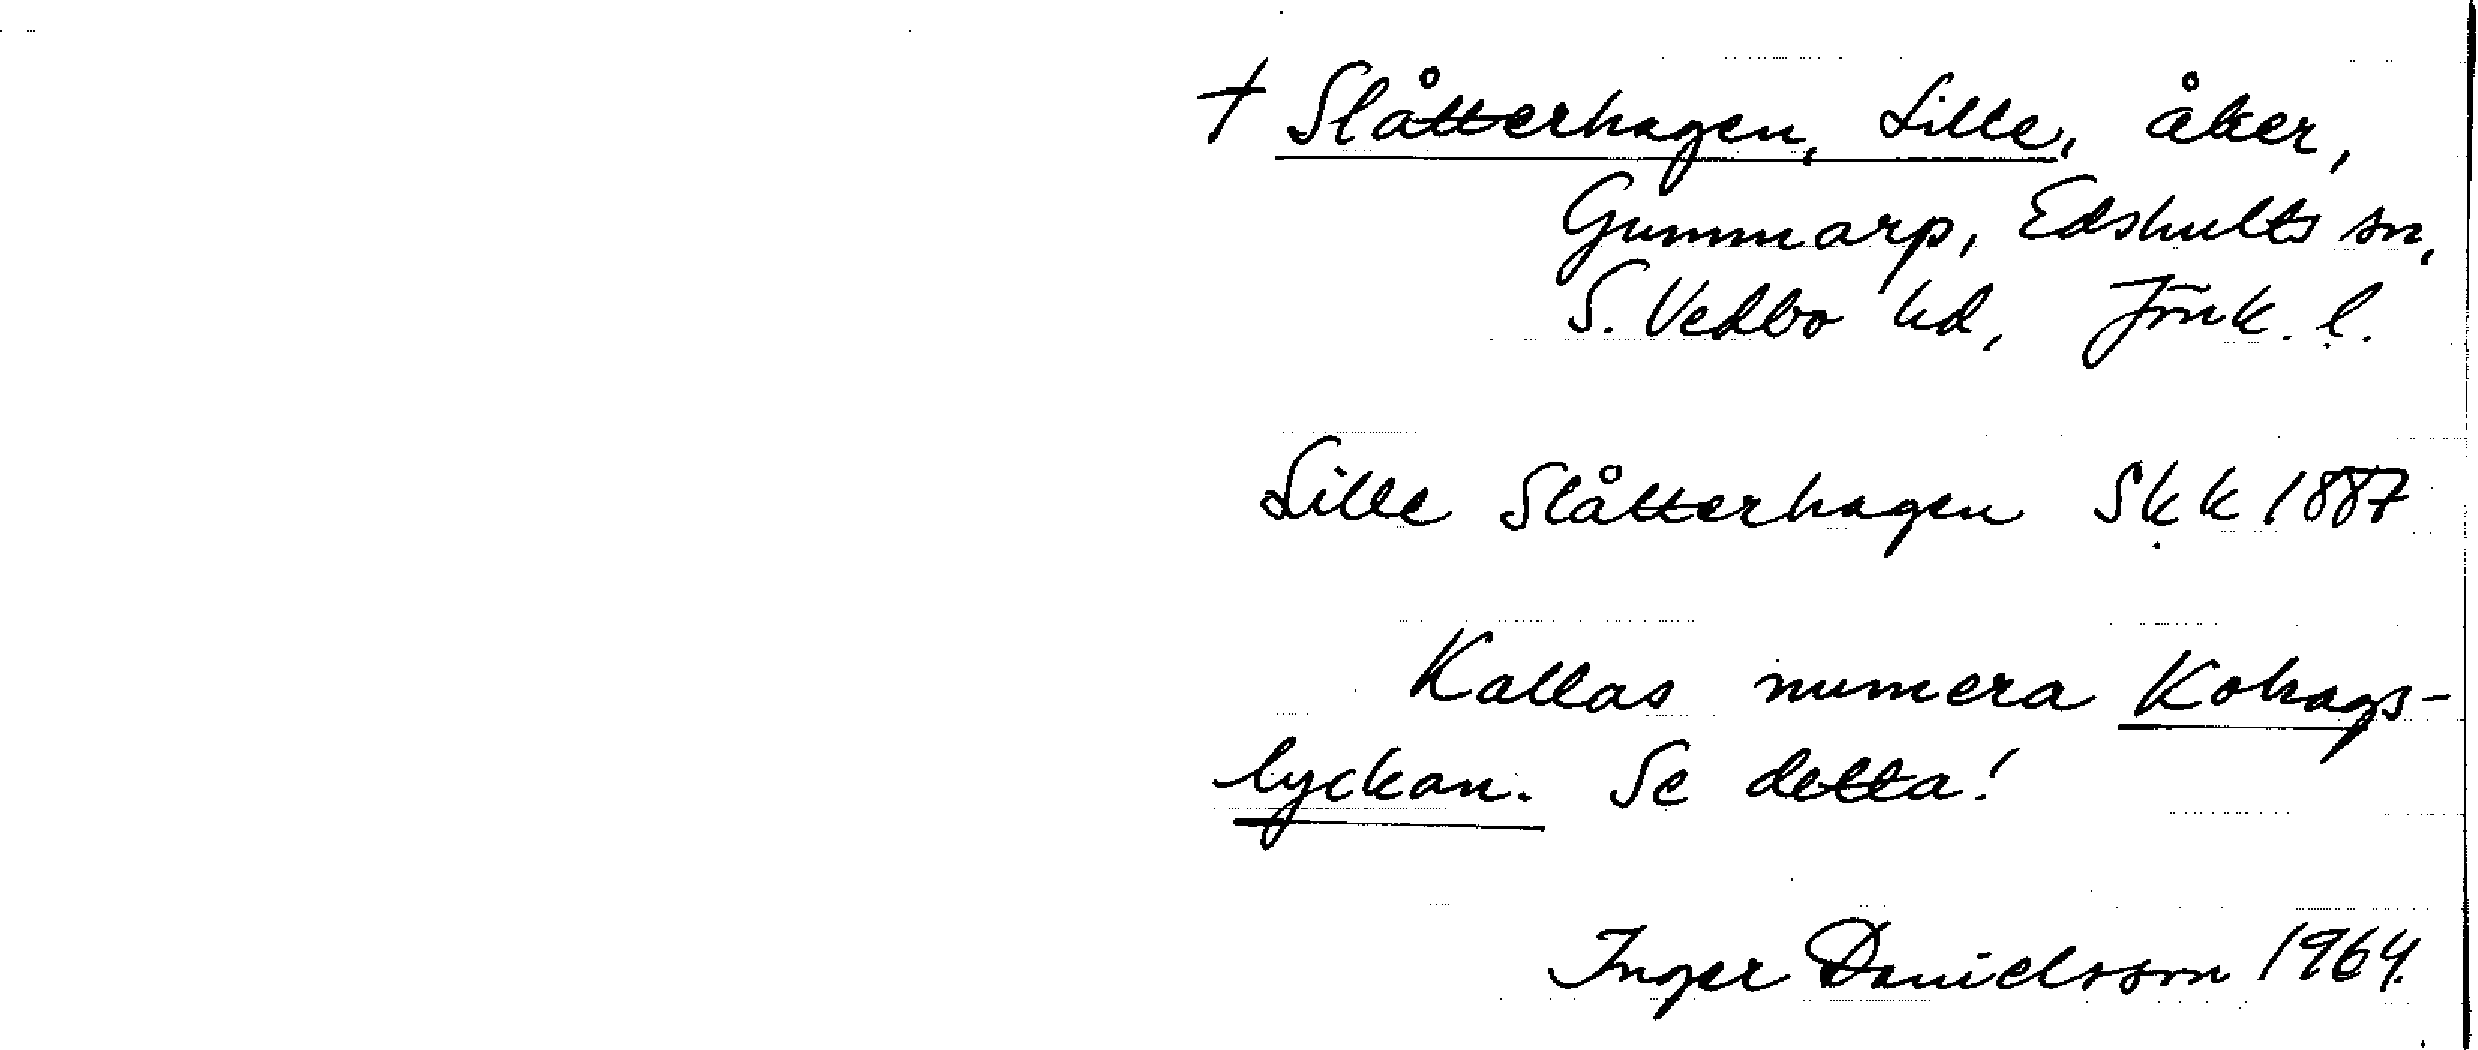 † Slåtterhagen, Lille, åker,
Gummarp, Edshults sn,
S. Vedbo hd, Jönk. l.
Lille Slåtterhagen Skk 1887
Kallas numera Kohags-
lyckan. Se detta!
Inger Danielsson 1964.